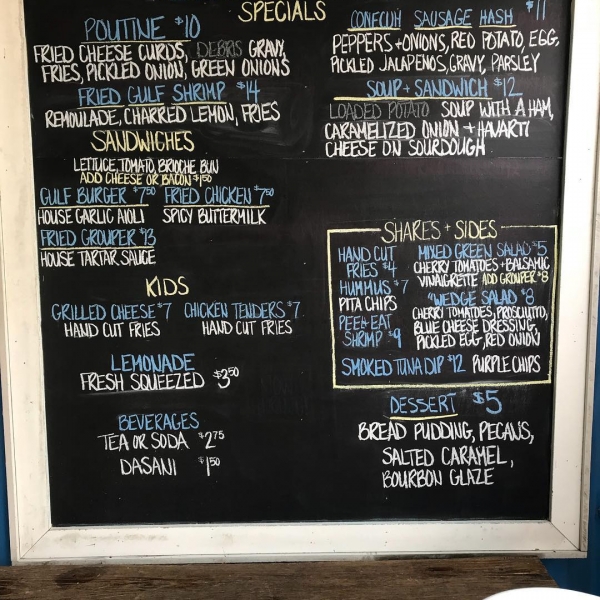 SPECIALS
POUTINE $10
FRIED CHEESE CURDS, DEBRIS GRAVY,
FRIES, PICKLED ONION, GREEN ONIONS
FRIED GULF SHRIMP $14
REMOULADE, CHARRED LEMON, FRIES
SANDWICHES
LETTUCE, TOMATO, BRIOCHE BUN
ADD CHEESE OR BACON $1.50
GULF BURGER $7.50 FRIED CHICKEN $7.50
HOUSE GARLIC AIOLI SPICY BUTTERMILK
FRIED GROUPER $13
HOUSE TARTAR SAUCE
KIDS
GRILLED CHEESE $7 CHICKEN TENDERS $7
HAND CUT FRIES HAND CUT FRIES
LEMONADE
FRESH SQUEEZED $3.50
BEVERAGES
TEA OR SODA $2.75
DASANI $1.50
SAUSAGE HASH $11
PEPPERS + ONIONS, RED POTATO, EGG,
PICKLED JALAPENOS, GRAVY, PARSLEY
SOUP + SANDWICH $12
LOADED POTATO SOUP WITH A HAM,
CARAMELIZED ONION + HAVARTI
CHEESE ON SOURDOUGH
SHARES + SIDES
HAND CUT
FRIES $4
HUMMUS $7
PITA CHIPS
PEEL+EAT
SHRIMP $9
MIXED GREEN SALAD $5
CHERRY TOMATOES + BALSAMIC
VINAIGRETTE ADD GROUPER $8
"WEDGE SALAD $8
CHERRY TOMATOES, PROSCIUTTO,
BLUE CHEESE DRESSING,
PICKLED EGG, RED ONION
SMOKED TUNA DIP $12 PURPLE CHIPS
DESSERT $5
BREAD PUDDING, PECANS,
SALTED CARAMEL,
BOURBON GLAZE